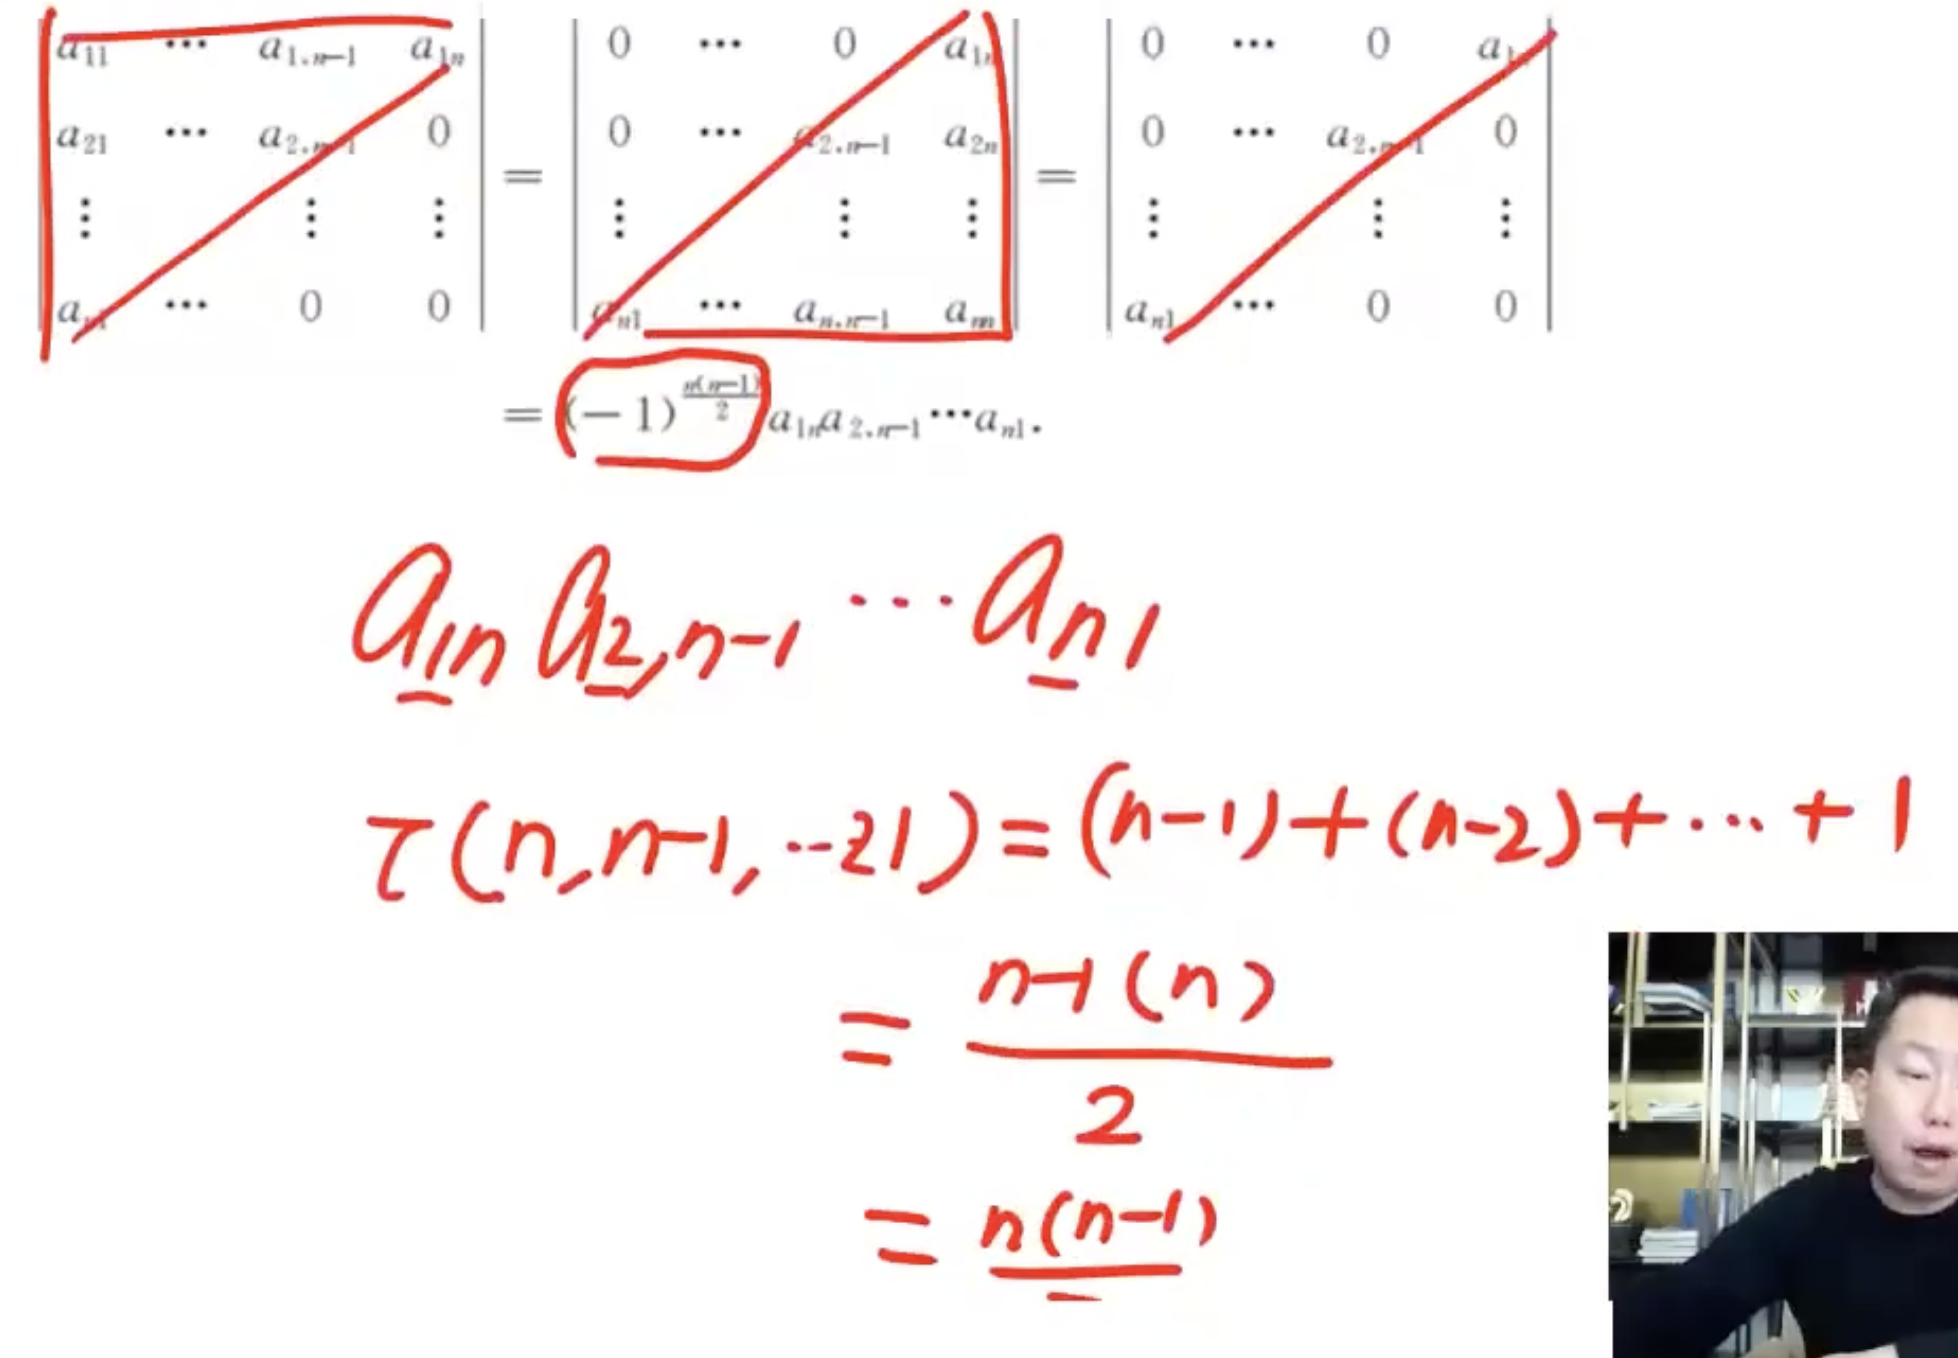 a₁₁ ⋯ a₁.ₙ₋₁ a₁ₙ
a₂₁ ⋯ a₂.ₙ₋₁ 0
⋮ ⋮ ⋮
aₙ₁ ⋯ 0 0
=
0 ⋯ 0 a₁ₙ
0 ⋯ a₂.ₙ₋₁ a₂ₙ
⋮ ⋮ ⋮
aₙ₁ ⋯ aₙ.ₙ₋₁ aₙₙ
=
0 ⋯ 0 a₁ₙ
0 ⋯ a₂.ₙ₋₁ 0
⋮ ⋮ ⋮
aₙ₁ ⋯ 0 0
= (−1)^(n(n−1)/2) a₁ₙa₂.ₙ₋₁⋯aₙ₁.
a₁ₙ a₂,ₙ₋₁ ⋯ aₙ₁
τ(n, n-1, ⋯21) = (n-1)+(n-2)+⋯+1
= n-1(n)
2
= n(n-1)